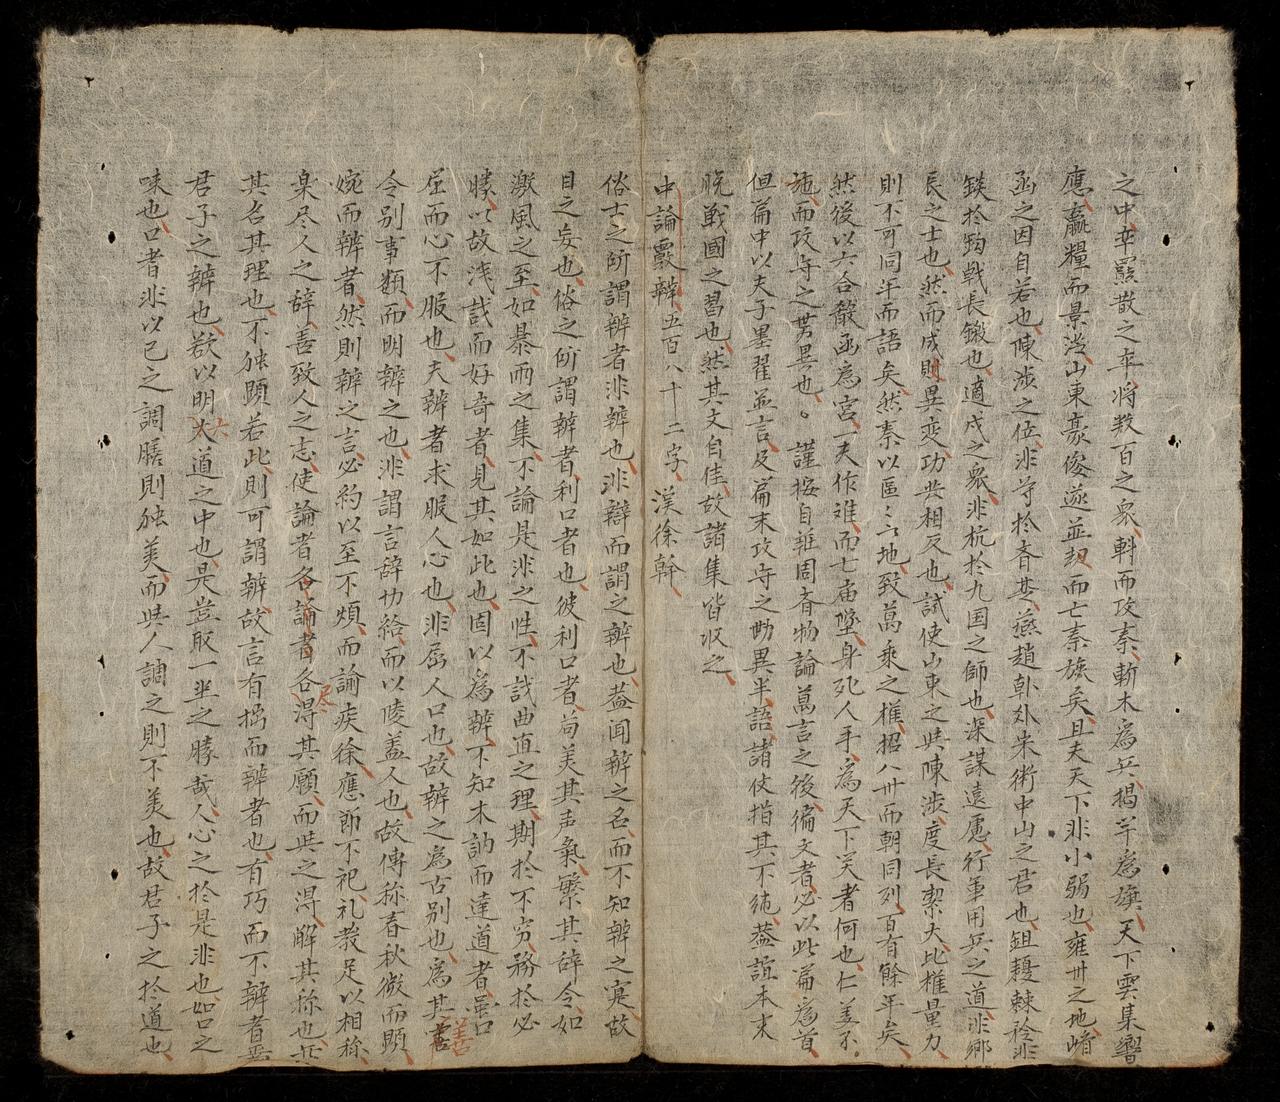 之中率罷散之卒将数百之衆斡而攻秦斬木為兵揭竿為旗天下雲集響
應贏糧而景従山東豪俊遂並起而亡秦族矣且夫天下非小弱也雍州之地崤
函之固自若也陳涉之位非尊於斉楚燕趙韓魏宋衛中山之君也鉏耰棘矜非
錟於鉤戟長鎩也適戍之衆非抗於九国之師也深謀遠慮行軍用兵之道非郷
長之士也然而成則異変功業相反也試使山東之與陳涉度長絜大比権量力
則不可同年而語矣然秦以區々之地致萬乗之権招八州而朝同列百有餘年矣
然後以六合殽函為宮一夫作難而七庿墮身死人手為天下笑者何也仁義不
施而攻守之勢異也。謹按自莊周斉物論萬言之後徧文者必以此篇為首
但篇中以夫子墨翟並言及篇末攻守之勢異半語諸伎指其不純葢誼本末
脱戦國之習也然其文自佳故諸集皆収之
中論覈辨五百八十二字 漢徐幹
俗士之所謂辨者非辨也非辯而謂之辨也葢聞辨之名而不知辨之寔故
目之妄也俗之所謂辨者利口者也彼利口者苟美其声氣繁其辞令如
激風之至如暴雨之集不論是非之性不識曲直之理期於不窮務於必
勝以故浅識而好奇者見其如此也固以為辨不知木訥而達道者雖口
屈而心不服也夫辨者求服人心也非屈人口也故辨之為古別也為其善
令別事類而明辨之也非謂言辞切給而以陵盖人也故傳称春秋微而顕
婉而辨者然則辨之言必約以至不煩而諭疾徐應節不犯礼教足以相称
楽尽人之辞善致人之志使論者各論者各淂其願而與之淂解其称也無
其名其理也不独顕若此則可謂辨故言有拙而辨者也有巧而不辨者焉
君子之辨也欲以明大道之中也是豈取一坐之勝哉人心之於是非也如口之
味也口者非以己之調膳則独美而與人調之則不美也故君子之於道也